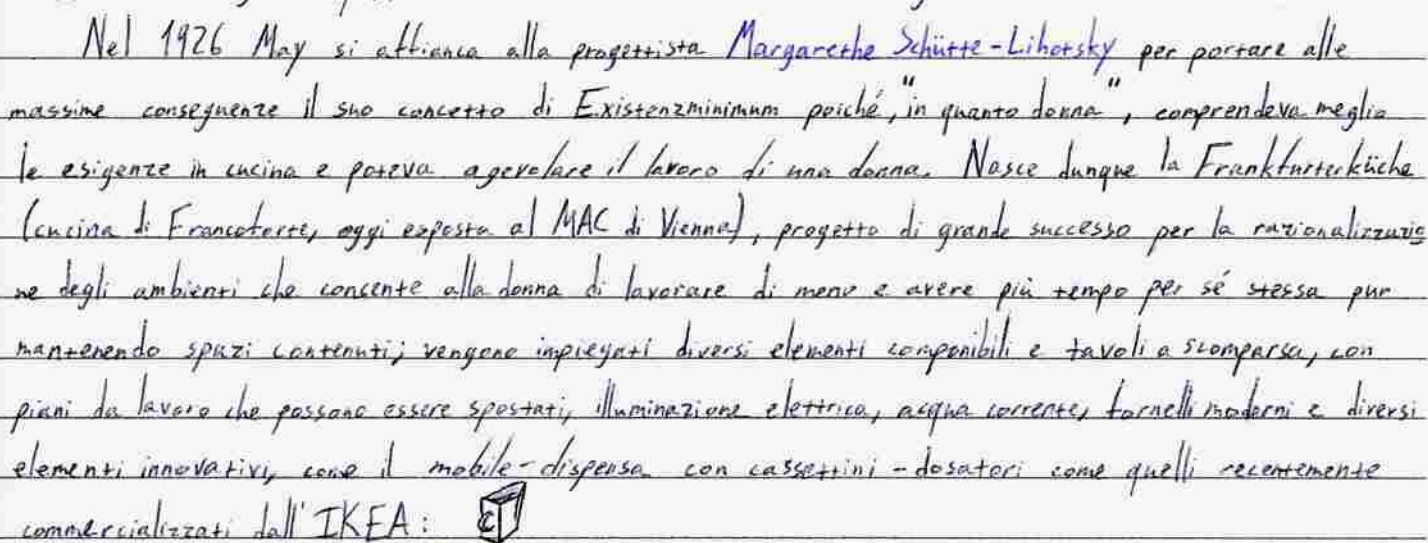 Nel 1926 May si affianca alla progettista Margarethe Schütte-Lihotsky per portare alle
massime conseguenze il suo concetto di Existenzminimum poiché, "in quanto donna", comprendeva meglio
le esigenze in cucina e poteva agevolare il lavoro di una donna. Nasce dunque la Frankfurterküche
(cucina di Francoforte, oggi esposta al MAC di Vienna), progetto di grande successo per la razionalizzazio
ne degli ambienti che consente alla donna di lavorare di meno e avere più tempo per sé stessa pur
mantenendo spazi contenuti; vengono impiegati diversi elementi componibili e tavoli a scomparsa, con
piani da lavoro che possono essere spostati, illuminazione elettrica, acqua corrente, fornelli moderni e diversi
elementi innovativi, come il mobile-dispensa con cassettini-dosatori come quelli recentemente
commercializzati dall'IKEA: